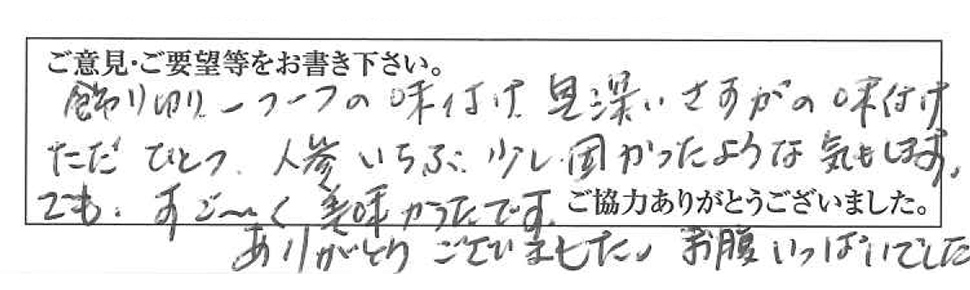 ご意見・ご要望等をお書き下さい。
飾り切り一つ一つの味付け 見深いさすがの味付け
ただひとつ、人参いちぶ、少し固かったような気もします。
でも、すご~く美味かったです。
ご協力ありがとうございました。
ありがとうございました。お腹いっぱいでした